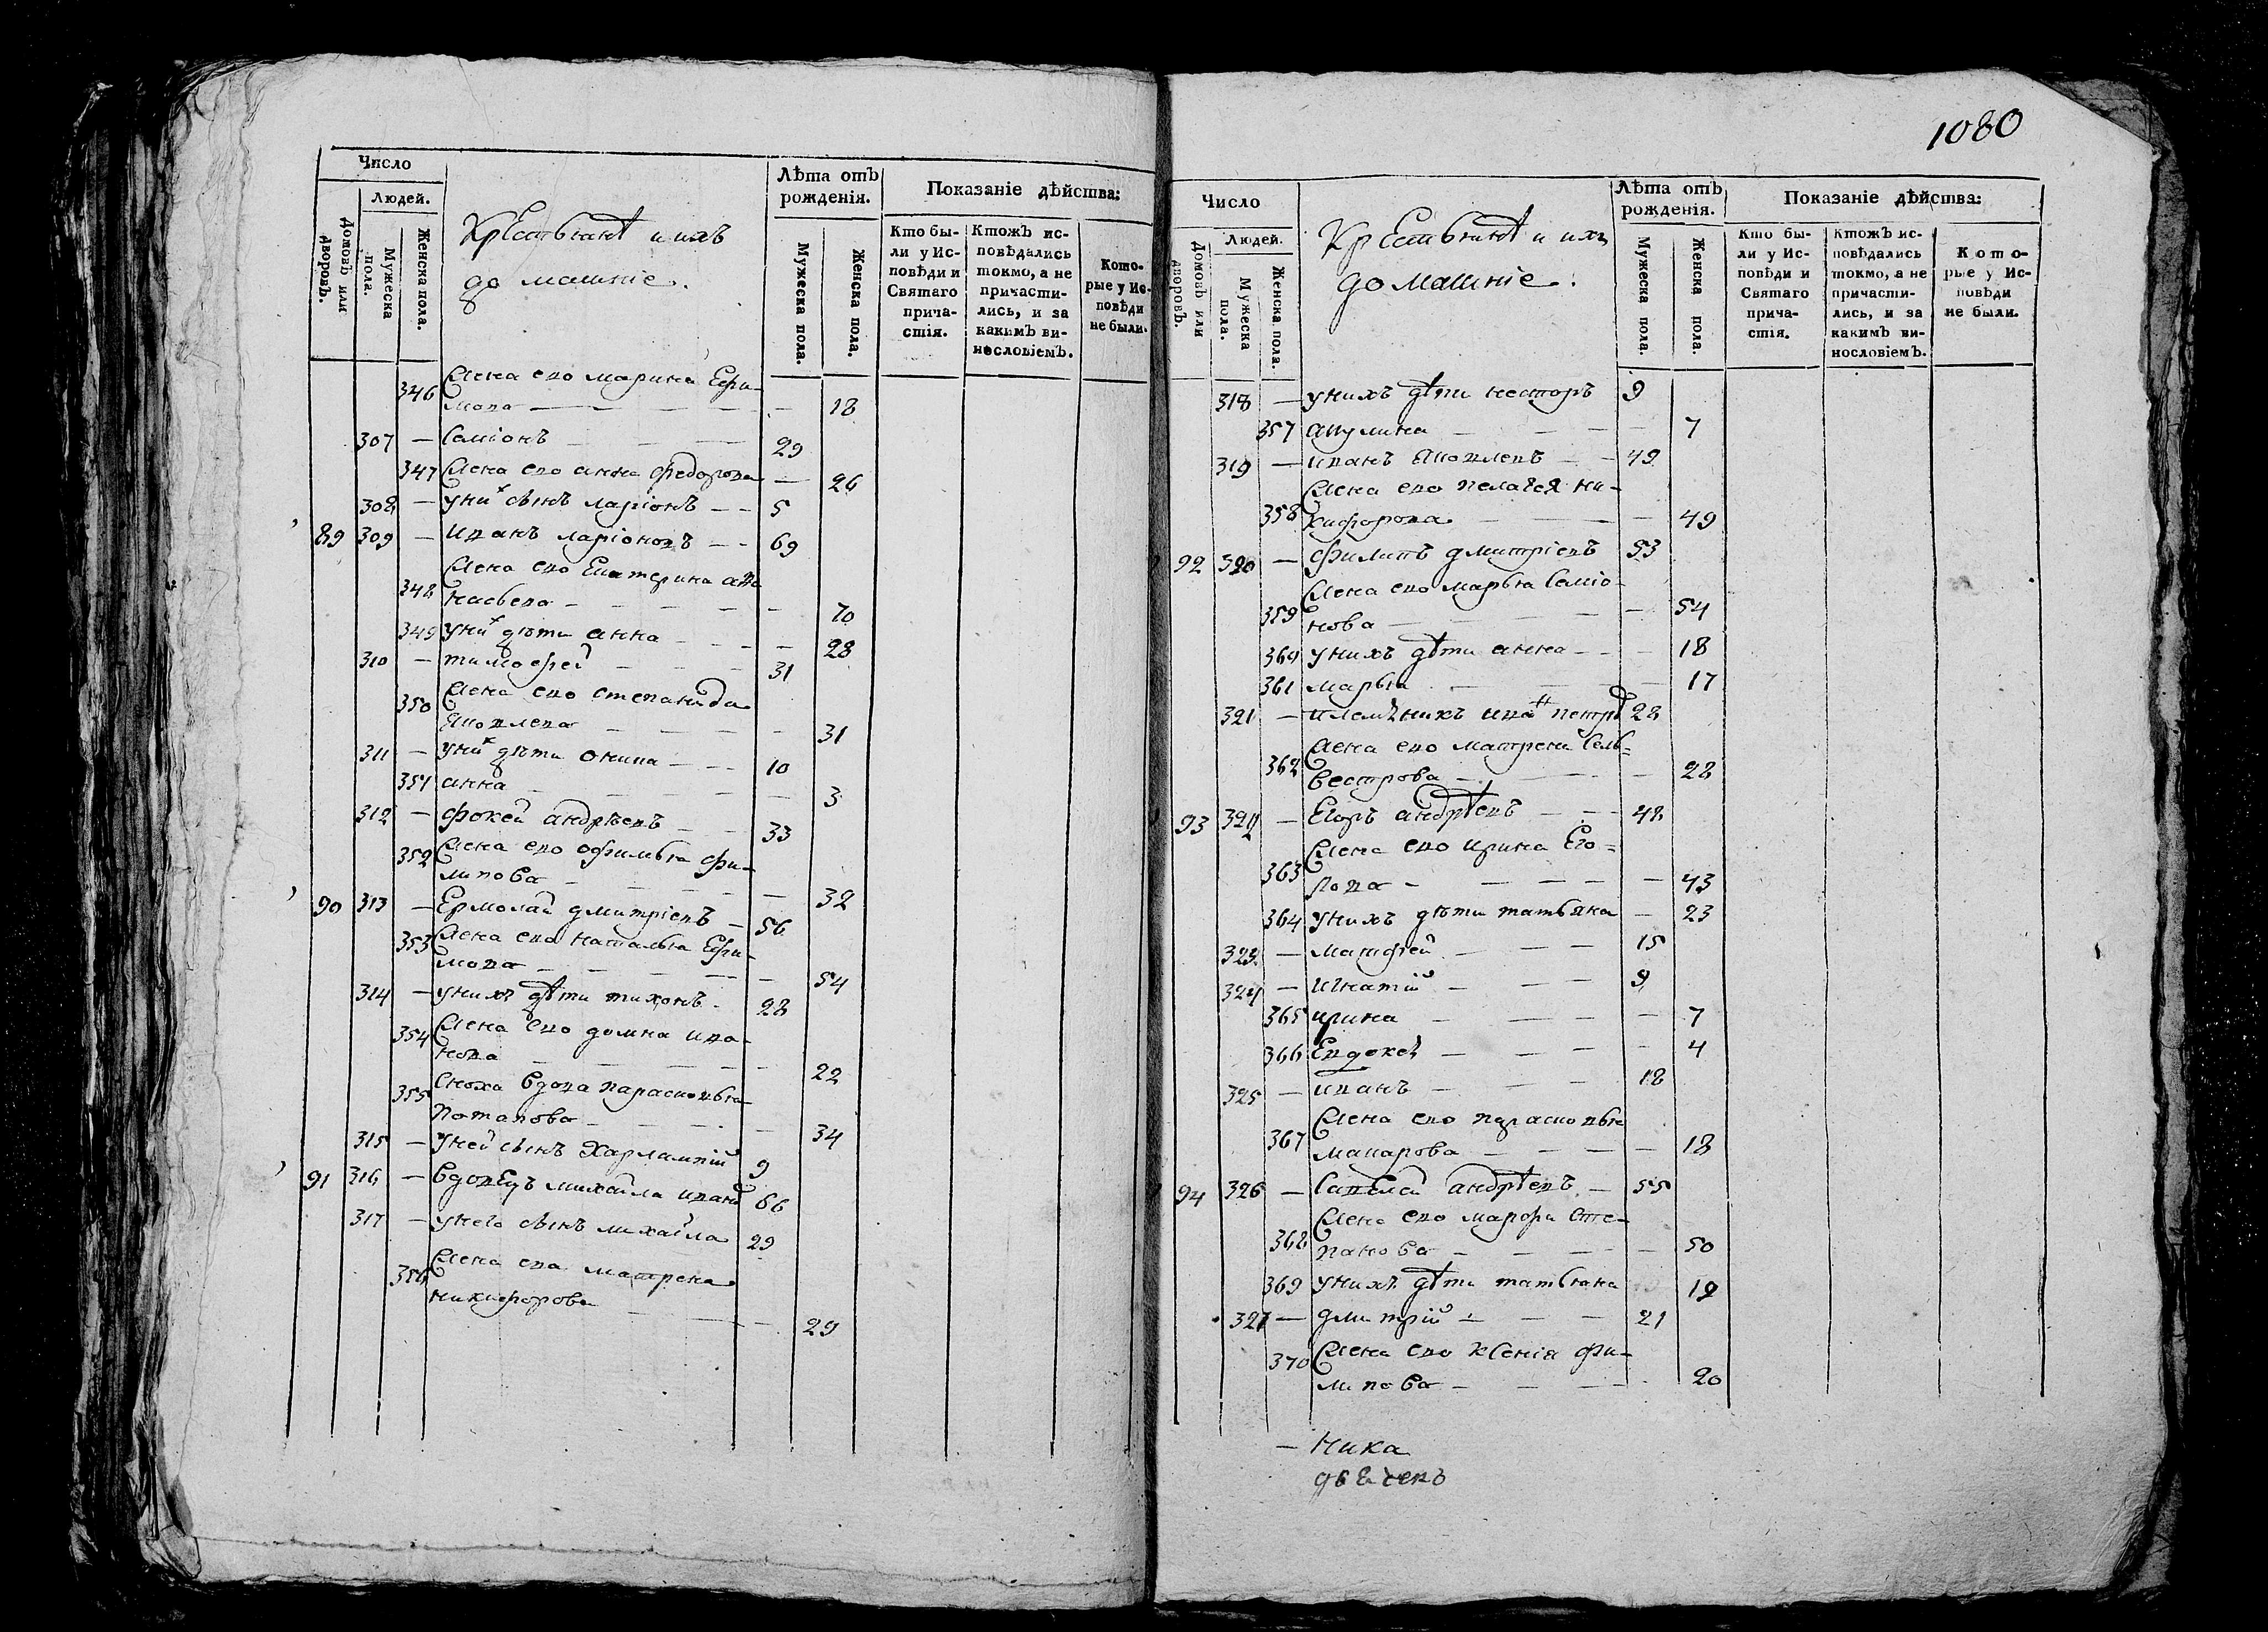 1080
Число
Людей.
Домовъ или дворовъ.
Мужеска пола.
Женска пола.
Крестьянѣ и ихъ
домашніе.
Лѣта отъ рожденія.
Мужеска пола.
Женска пола.
Показаніе дѣйства:
Кто бы-
ли у Ис-
повѣди и
Святаго
прича-
стія.
Ктожъ ис-
повѣдались
токмо, а не
причасти-
лись, и за
какимъ ви-
нословіемъ.
Кото-
рые у Ис-
повѣди
не были.
346 Жена его марина Ефи-
мова — 18
307 — Семіонъ — 29
347 Жена его анна федорова — 26
308 — у них сынъ ларіонъ — 5
89 309 — Иванъ ларіоновъ — 69
348 Жена его Екатерина афа
насьева — 70
349 у них дѣти анна — 28
310 — тимофей — 31
350 Жена его степанида
Яковлева — 31
311 — у них дѣти — 10
351 анна — 3
312 — фокей андрѣевъ — 33
352 Жена его офимья фи-
липова — 32
90 313 — Ермолай дмитріевъ — 56
353 Жена его наталья Ефи-
мова — 54
314 — у нихъ дѣти тихонъ — 28
354 Жена его домна ива-
нова — 22
355 Сноха вдова парасковья
Потапова — 34
315 — у ней сынъ Харлампій 9
91 316 — вдовецъ михайла иванов 66
317 — у него сынъ михайла 29
356 Жена ева матрена
никифорова — 29
Число
Людей.
Домовъ или дворовъ.
Мужеска пола.
Женска пола.
Крестьянѣ и ихъ
домашніе.
Лѣта отъ рожденія.
Мужеска пола.
Женска пола.
Показаніе дѣйства:
Кто бы-
ли у Ис-
повѣди и
Святаго
прича-
стія.
Ктожъ ис-
повѣдались
токмо, а не
причасти-
лись, и за
какимъ ви-
нословіемъ.
Кото-
рые у Ис-
повѣди
не были.
318 — у нихъ дѣти несторъ 9
357 акулина — 7
319 — иванъ Яковлевъ — 49
Жена его пелагея ни-
358 кифорова — 49
92 320 — филипъ дмитріевъ 53
Жена его марья Семіо-
359 нова — 54
360 у нихъ дѣти анна — 18
361 марья — 17
321 — племѣникъ иван петров 28
Жена его матрена Сель-
362 вестрова — 28
93 322 — Егоръ андрѣевъ — 48
Жена его ирина Его-
363 рова — 43
364 у нихъ дѣти татьяна — 23
323 — матфей — 15
324 — Игнатій — 9
365 ирина — 7
366 Евдокея — 4
325 — иванъ — 18
Жена его парасковья
367 макарова — 18
94 326 — Савелей андрѣевъ — 55
Жена его марфа Сте-
368 панова — 50
369 у нихъ дѣти татьяна 19
327 — дмитрій — 21
370 Жена его Ксенія фи-
липова — 20
— Ника